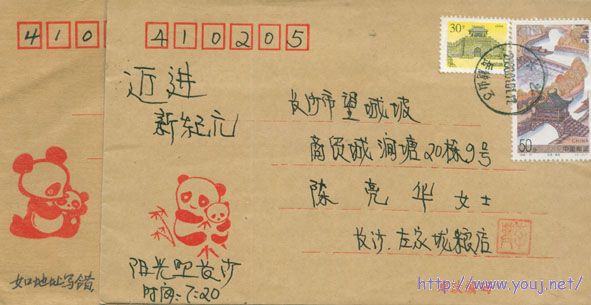 410
410205
30分
迈进
新纪元
长沙市望城坡
商贸城涧塘20栋9号
陈亮华女士
长沙左家垅粮店
阳光照长沙
时间:7:20
如地址写错
50分
CHINA
中国邮政
http://www.youj.net/